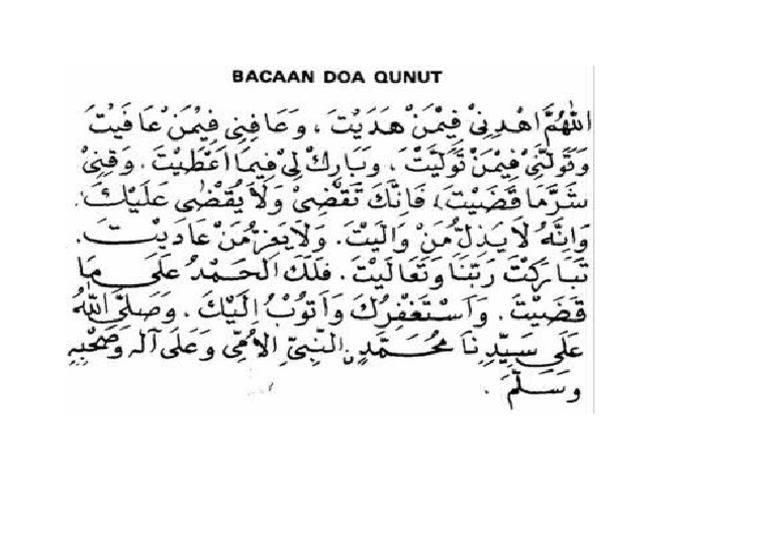 BACAAN DOA QUNUT
اَللّٰهُمَّ اهْدِنِيْ فِيْمَنْ هَدَيْتَ ، وَعَافِنِى فِيْمَنْ عَافَيْتَ
وَتَوَلَّنِيْ فِيْمَنْ تَوَلَّيْتَ ، وَبَارِكْ لِيْ فِيمَا اَعْطَيْتَ . وَقِنِيْ
شَرَّمَا قَضَيْتَ ، فَاِنَّكَ تَقْضِيْ وَلَا يُقْضٰى عَلَيْكَ .
وَاِنَّهُ لَا يَذِلُّ مَنْ وَالَيْتَ . وَلَا يَعِزُّ مَنْ عَادَيْتَ .
تَبَارَكْتَ رَبَّنَا وَتَعَالَيْتَ . فَلَكَ الْحَمْدُ عَلَى مَا
قَضَيْتَ . وَاَسْتَغْفِرُكَ وَاَتُوْبُ اِلَيْكَ . وَصَلَّى اللّٰهُ
عَلَى سَيِّدِنَا مُحَمَّدٍ النَّبِيِّ الْاُمِّى وَعَلَى آلِهِ وَصَحْبِهِ
وَسَلَّمَ .